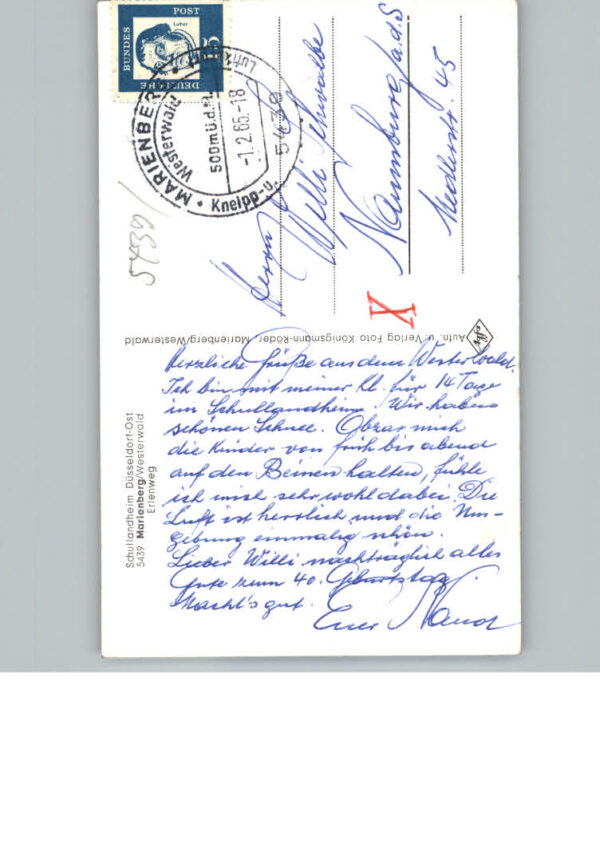 DEUTSCHE
BUNDES
POST
Luther
15
MARIENBERG
Westerwald
500 m ü.d.M.
-1.2.65.-18
Kneipp- u.
Luftk
5439
5439/
Herrn
Willi Schwalbe
Naumburg/a.d.S
Medlerstr. 45
X
Aufn. u. Verlag Foto Königsmann-Röder, Marienberg/Westerwald
Schullandheim Düsseldorf-Ost
5439 Marienberg/Westerwald
Erlenweg
Herzliche Grüße aus dem Westerwald.
Ich bin mit meiner Kl. für 14 Tage
im Schullandheim. Wir haben
schönen Schnee. Obzwar mich
die Kinder von früh bis abend
auf den Beinen halten, fühle
ich mich sehr wohl dabei. Die
Luft ist herrlich und die Um-
gebung einmalig schön.
Lieber Willi nachträglich alles
Gute zum 40. Geburtstag.
Macht's gut.
Euer